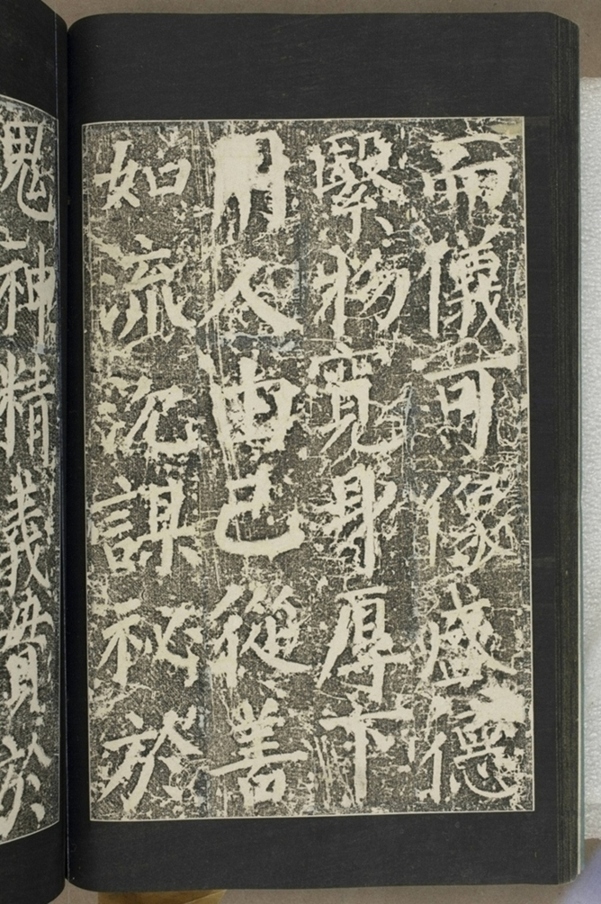 而儀可像盛德
繄物寬身厚下
用人由己從善
如流沉謀祕於
鬼神精義貫於